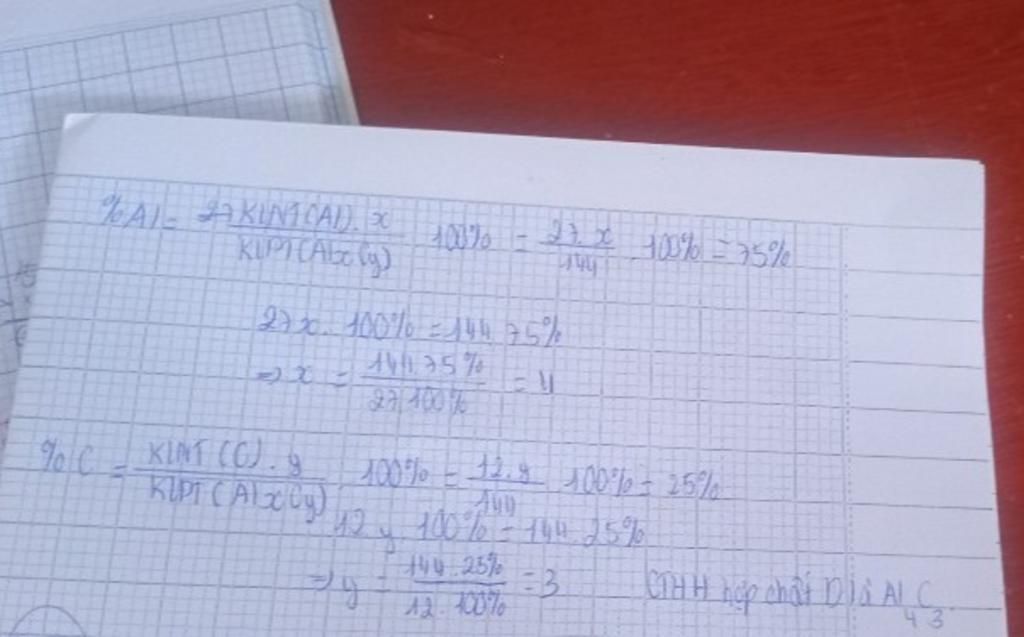 %Al = 27 KLNT(Al). x / KLPT(AlxCy) . 100% = 27. x / 144 . 100% = 75%
27x. 100% = 144.75%
=> x = 144.75% / 27.100% = 4
%C = KLNT (C). y / KLPT (AlxCy) . 100% = 12.y / 144 . 100% = 25%
12y. 100% = 144.25%
=> y = 144.25% / 12.100% = 3 CTHH hợp chất D là Al4C3.